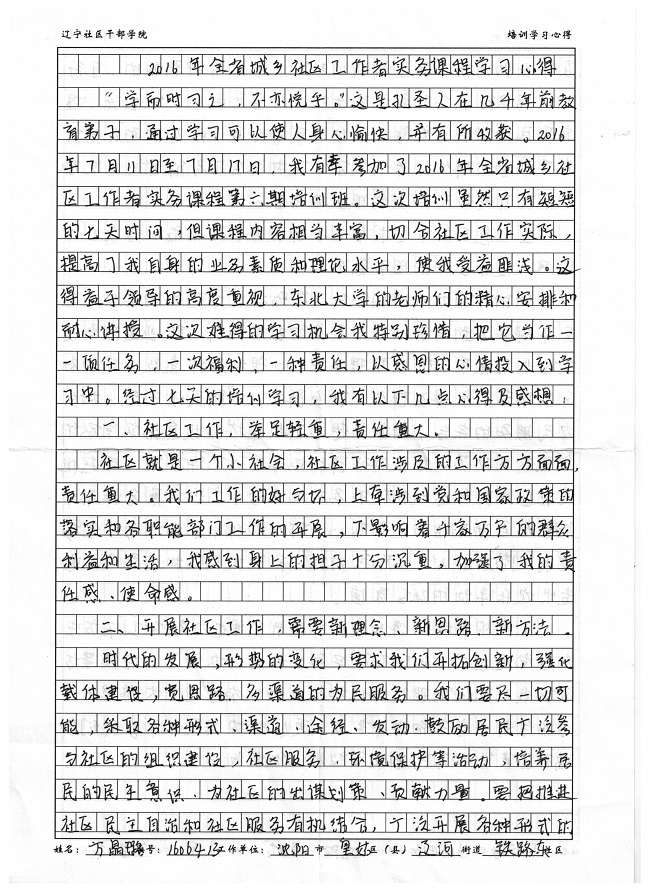 辽宁社区干部学院 培训学习心得
2016年全省城乡社区工作者实务课程学习心得
“学而时习之，不亦悦乎。”这是孔圣人在几千年前教
育弟子，通过学习可以使人身心愉快，并有所收获。2016
年7月11日至7月17日，我有幸参加了2016年全省城乡社
区工作者实务课程第六期培训班。这次培训虽然只有短短
的七天时间，但课程内容相当丰富，切合社区工作实际，
提高了我自身的业务素质和理论水平，使我受益匪浅。这
得益于领导的高度重视，东北大学的老师们的精心安排和
耐心讲授。这次难得的学习机会我特别珍惜，把它当作一
一项任务，一次福利，一种责任，以感恩的心情投入到学
习中。经过七天的培训学习，我有以下几点心得及感想：
一、社区工作，举足轻重，责任重大。
社区就是一个小社会，社区工作涉及的工作方方面面，
责任重大。我们工作的好与坏，上牵涉到党和国家政策的
落实和各职能部门工作的开展，下影响着千家万户的群众
利益和生活，我感到身上的担子十分沉重，加强了我的责
任感、使命感。
二、开展社区工作，需要新理念、新思路、新方法。
时代的发展，形势的变化，要求我们开拓创新，强化
载体建设，宽思路、多渠道的为民服务。我们要尽一切可
能，采取各种形式、渠道、途经、发动、鼓励居民广泛参
与社区的组织建设，社区服务、环境保护等活动，培养居
民的民主意识，为社区的出谋划策、贡献力量。要把推进
社区民主自治和社区服务有机结合，广泛开展各种形式的
姓名：方晶 号：1606413 工作单位：沈阳市 皇姑区（县）辽河街道 铁路 社区